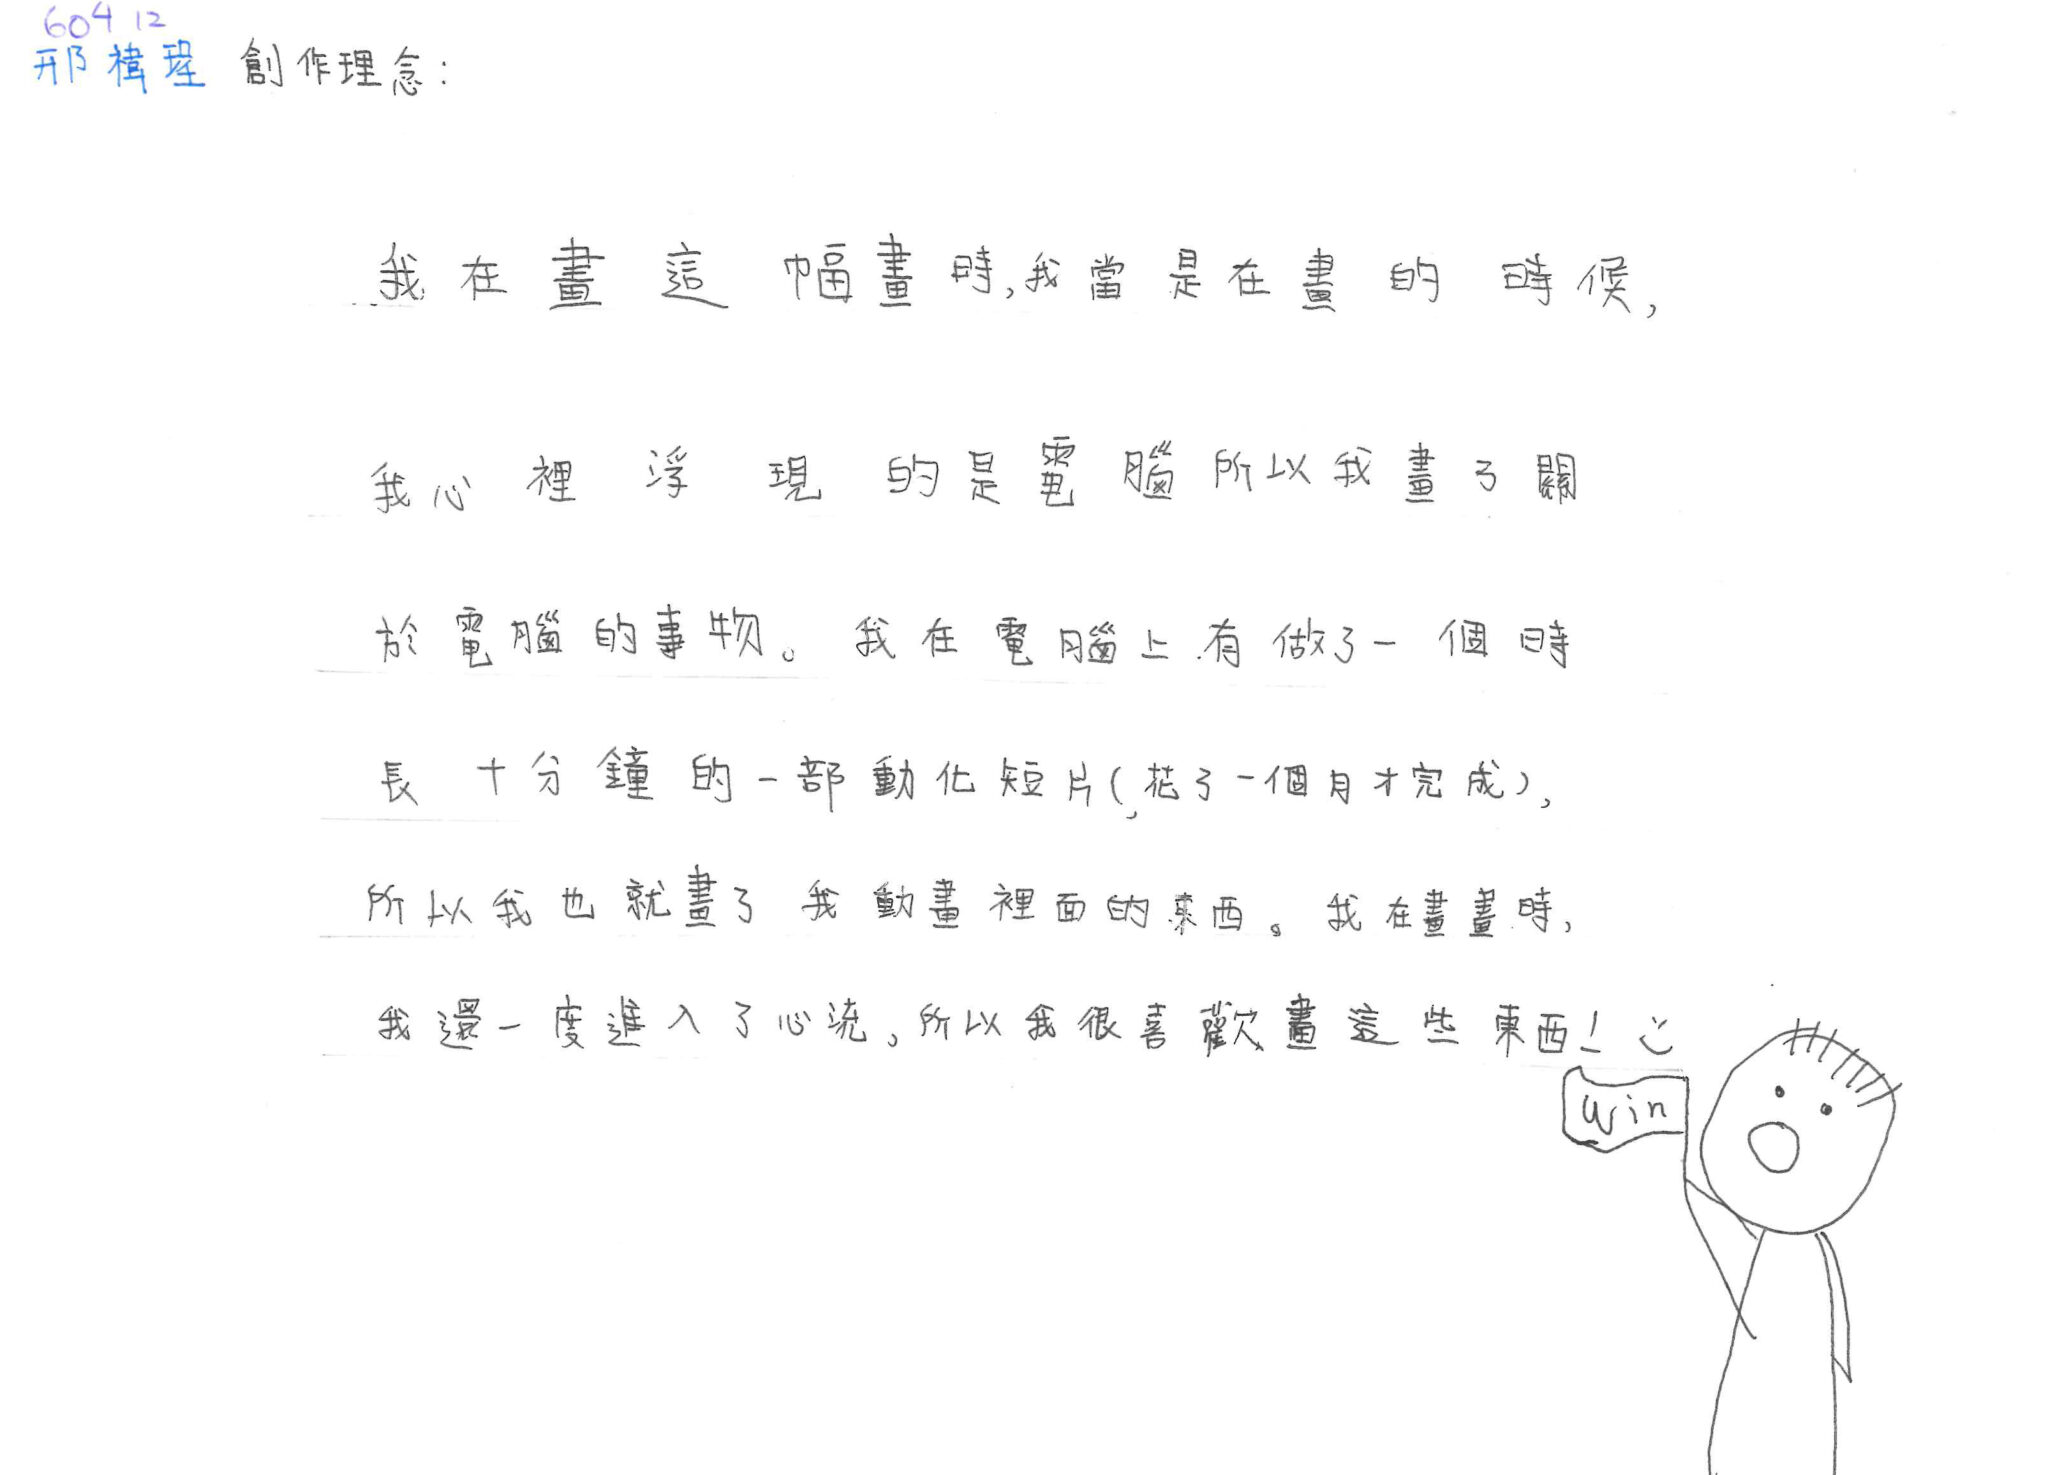 604 12
邢禕珵 創作理念:
我在畫這幅畫時,我當是在畫的時候,
我心裡浮現的是電腦所以我畫了關
於電腦的事物。我在電腦上有做了一個時
長十分鐘的一部動化短片(花了一個月才完成),
所以我也就畫了我動畫裡面的東西。我在畫畫時,
我還一度進入了心流,所以我很喜歡畫這些東西!
win